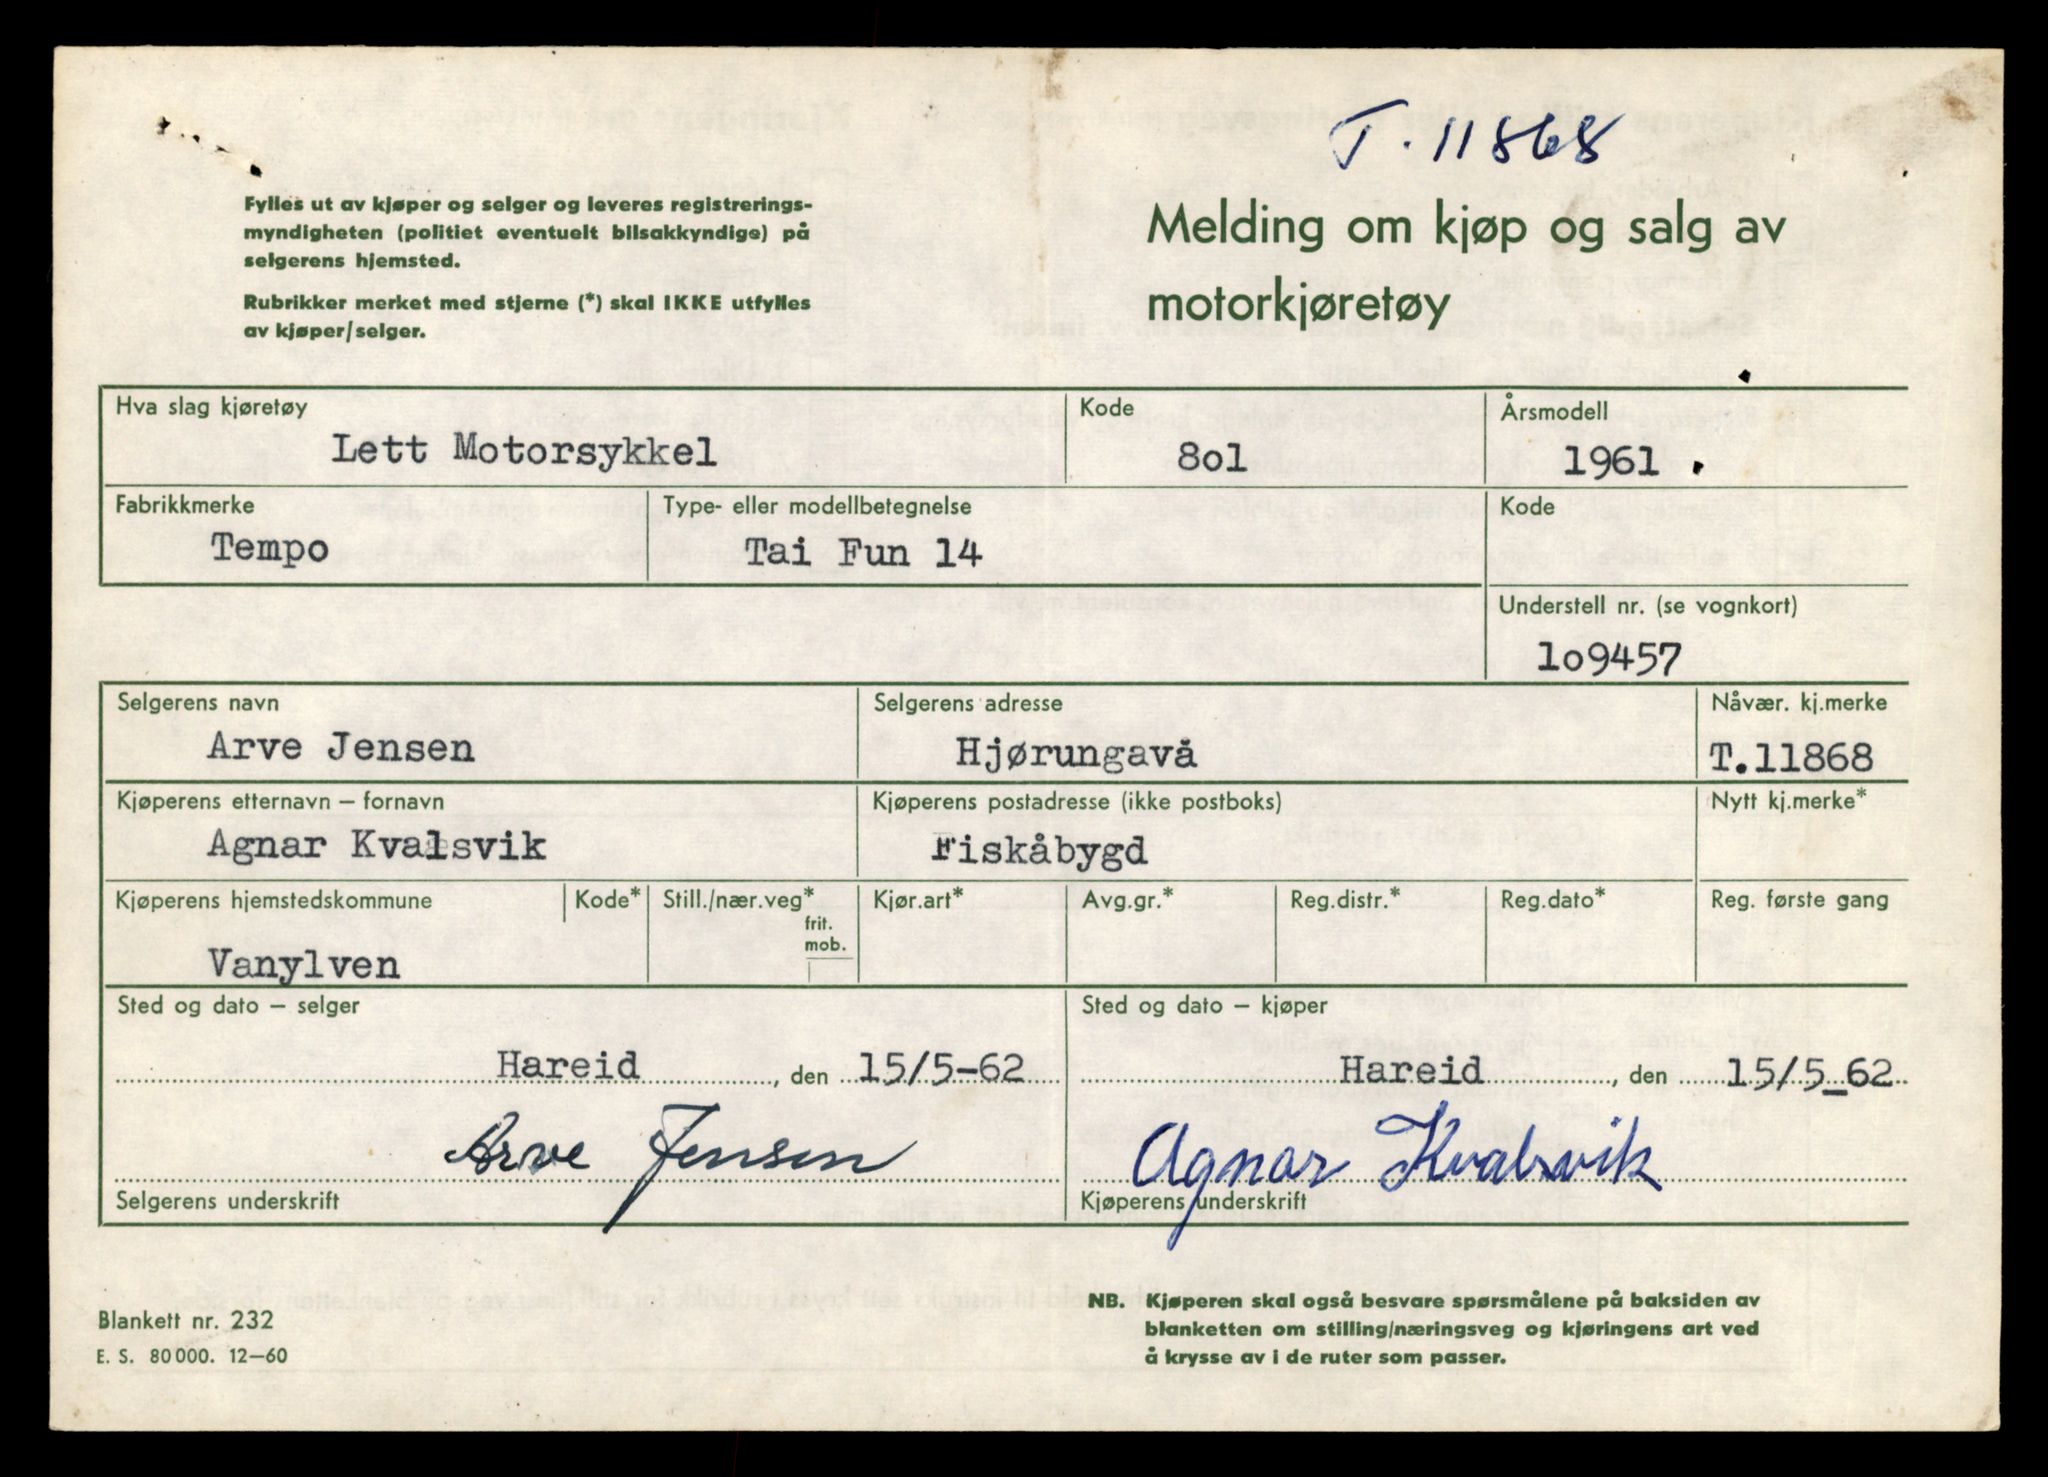 T. 11868
Fylles ut av kjøper og selger og leveres registrerings-
myndigheten (politiet eventuelt bilsakkyndige) på
selgerens hjemsted.
Rubrikker merket med stjerne (*) skal IKKE utfylles
av kjøper/selger.
Melding om kjøp og salg av
motorkjøretøy
Hva slag kjøretøy
Lett Motorsykkel
Kode
8o1
Årsmodell
1961
Fabrikkmerke
Tempo
Type- eller modellbetegnelse
Tai Fun 14
Kode
Understell nr. (se vognkort)
1o9457
Selgerens navn
Arve Jensen
Selgerens adresse
Hjørungavå
Nåvær. kj.merke
T.11868
Kjøperens etternavn – fornavn
Agnar Kvalsvik
Kjøperens postadresse (ikke postboks)
Fiskåbygd
Nytt kj.merke*
Kjøperens hjemstedskommune
Vanylven
Kode*
Still./nær.veg*
frit.
mob.
Kjør.art*
Avg.gr.*
Reg.distr.*
Reg.dato*
Reg. første gang
Sted og dato – selger
Hareid, den 15/5-62
Arve Jensen
Selgerens underskrift
Sted og dato – kjøper
Hareid, den 15/5_62
Agnar Kvalsvik
Kjøperens underskrift
Blankett nr. 232
E. S. 80000. 12–60
NB. Kjøperen skal også besvare spørsmålene på baksiden av
blanketten om stilling/næringsveg og kjøringens art ved
å krysse av i de ruter som passer.